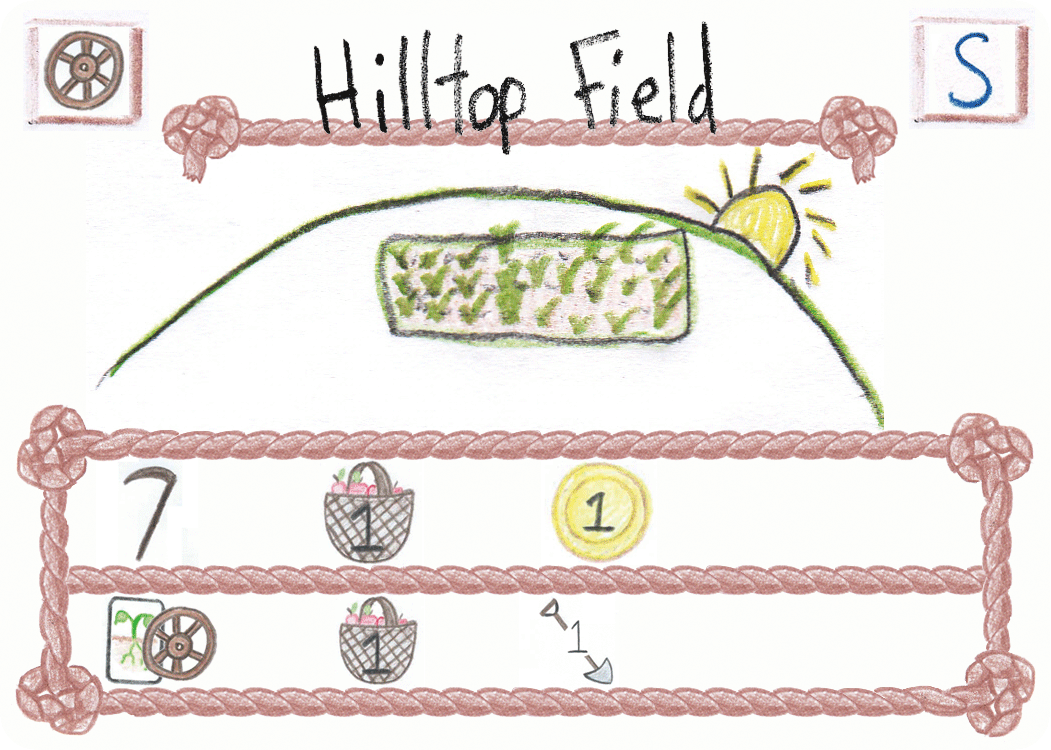 Hilltop Field
S
7 1 1
1 1